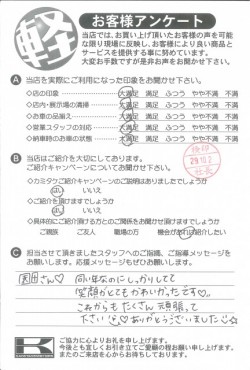 軽
お客様アンケート
当店では、お買い上げ頂いたお客様の声を可能
な限り現場に反映し、お客様により良い商品と
サービスを提供する事に努めています。
大変お手数ですが是非お声をお聞かせ下さい。
A 当店を実際にご利用になった印象をお聞かせ下さい。
◇店の印象 大満足 満足 ふつう やや不満 不満
◇店内・展示場の清掃 大満足 満足 ふつう やや不満 不満
◇お車の品揃え 大満足 満足 ふつう やや不満 不満
◇営業スタッフの対応 大満足 満足 ふつう やや不満 不満
◇納車時のお車の状態 大満足 満足 ふつう やや不満 不満
B 当店はご紹介を大切にしております。
ご紹介キャンペーンについてお聞かせ下さい。
◇カミタケご紹介キャンペーンのご説明はありましたでしょうか
はい いいえ
◇ご紹介を頂けますでしょうか
はい いいえ
◇具体的にご紹介頂ける方とのご関係をお聞かせ頂けますでしょうか
ご親族 ご友人 職場の方 機会があれば紹介したい
C 担当させて頂きましたスタッフへのご指摘、ご指導をお
願いします。応援メッセージもぜひお願いします。
さん♡ 同い年なのにしっかりしてて
笑顔がとてもかわいかったです♡
これからもたくさん頑張って
下さい ありがとうございました
ご協力に心よりお礼を申し上げます。
今後とも宜しくお引き立てご愛顧の程お願い申し上げます。
またのご来店を心からお待ちしております。